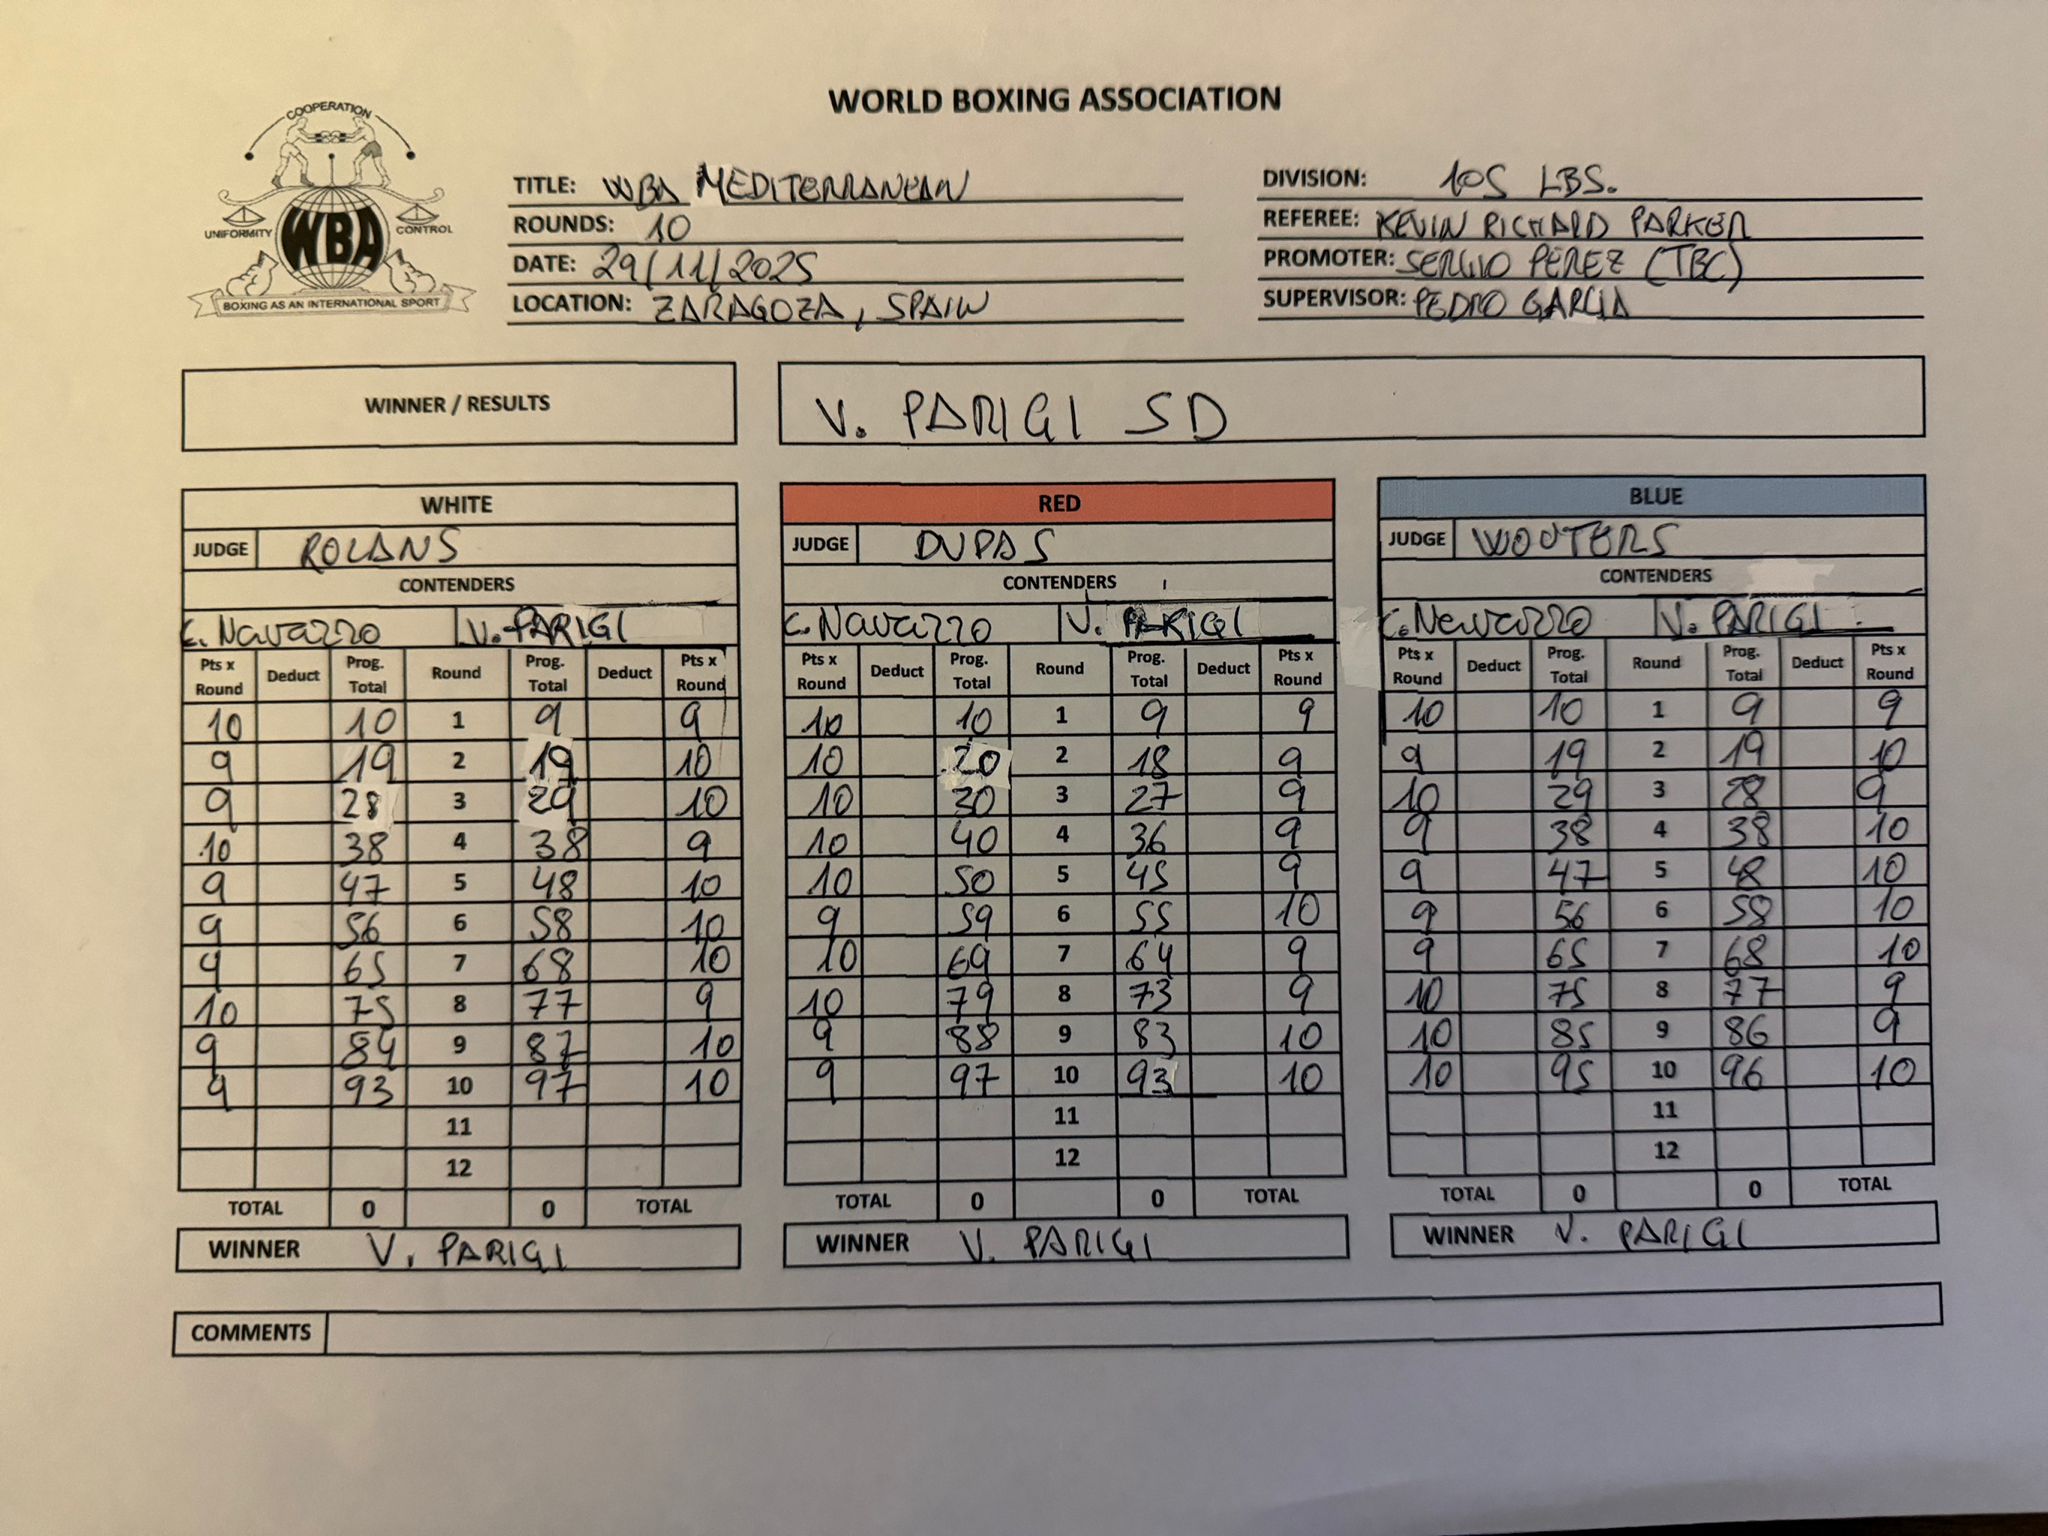 WORLD BOXING ASSOCIATION
COOPERATION
UNIFORMITY
CONTROL
WBA
BOXING AS AN INTERNATIONAL SPORT
TITLE: WBA MEDITERRANEAN
ROUNDS: 10
DATE: 29/11/2025
LOCATION: ZARAGOZA, SPAIN
DIVISION: 105 LBS.
REFEREE: KEVIN RICHARD PARKER
PROMOTER: SERGIO PEREZ (TBC)
SUPERVISOR: PEDRO GARCIA
WINNER / RESULTS
V. PARIGI SD
WHITE
JUDGE ROLANS
CONTENDERS
C. Navarro V. PARIGI
Pts x Round Deduct Prog. Total Round Prog. Total Deduct Pts x Round
10 10 1 9 9
9 19 2 19 10
9 28 3 29 10
10 38 4 38 9
9 47 5 48 10
9 56 6 58 10
9 65 7 68 10
10 75 8 77 9
9 84 9 87 10
9 93 10 97 10
11
12
TOTAL 0 0 TOTAL
WINNER V. PARIGI
RED
JUDGE DUPAS
CONTENDERS
C. Navarro V. PARIGI
Pts x Round Deduct Prog. Total Round Prog. Total Deduct Pts x Round
10 10 1 9 9
10 20 2 18 9
10 30 3 27 9
10 40 4 36 9
10 50 5 45 9
9 59 6 55 10
10 69 7 64 9
10 79 8 73 9
9 88 9 83 10
9 97 10 93 10
11
12
TOTAL 0 0 TOTAL
WINNER V. PARIGI
BLUE
JUDGE WOUTERS
CONTENDERS
C. Navarro V. PARIGI
Pts x Round Deduct Prog. Total Round Prog. Total Deduct Pts x Round
10 10 1 9 9
9 19 2 19 10
10 29 3 28 9
9 38 4 38 10
9 47 5 48 10
9 56 6 58 10
9 65 7 68 10
10 75 8 77 9
10 85 9 86 9
10 95 10 96 10
11
12
TOTAL 0 0 TOTAL
WINNER V. PARIGI
COMMENTS